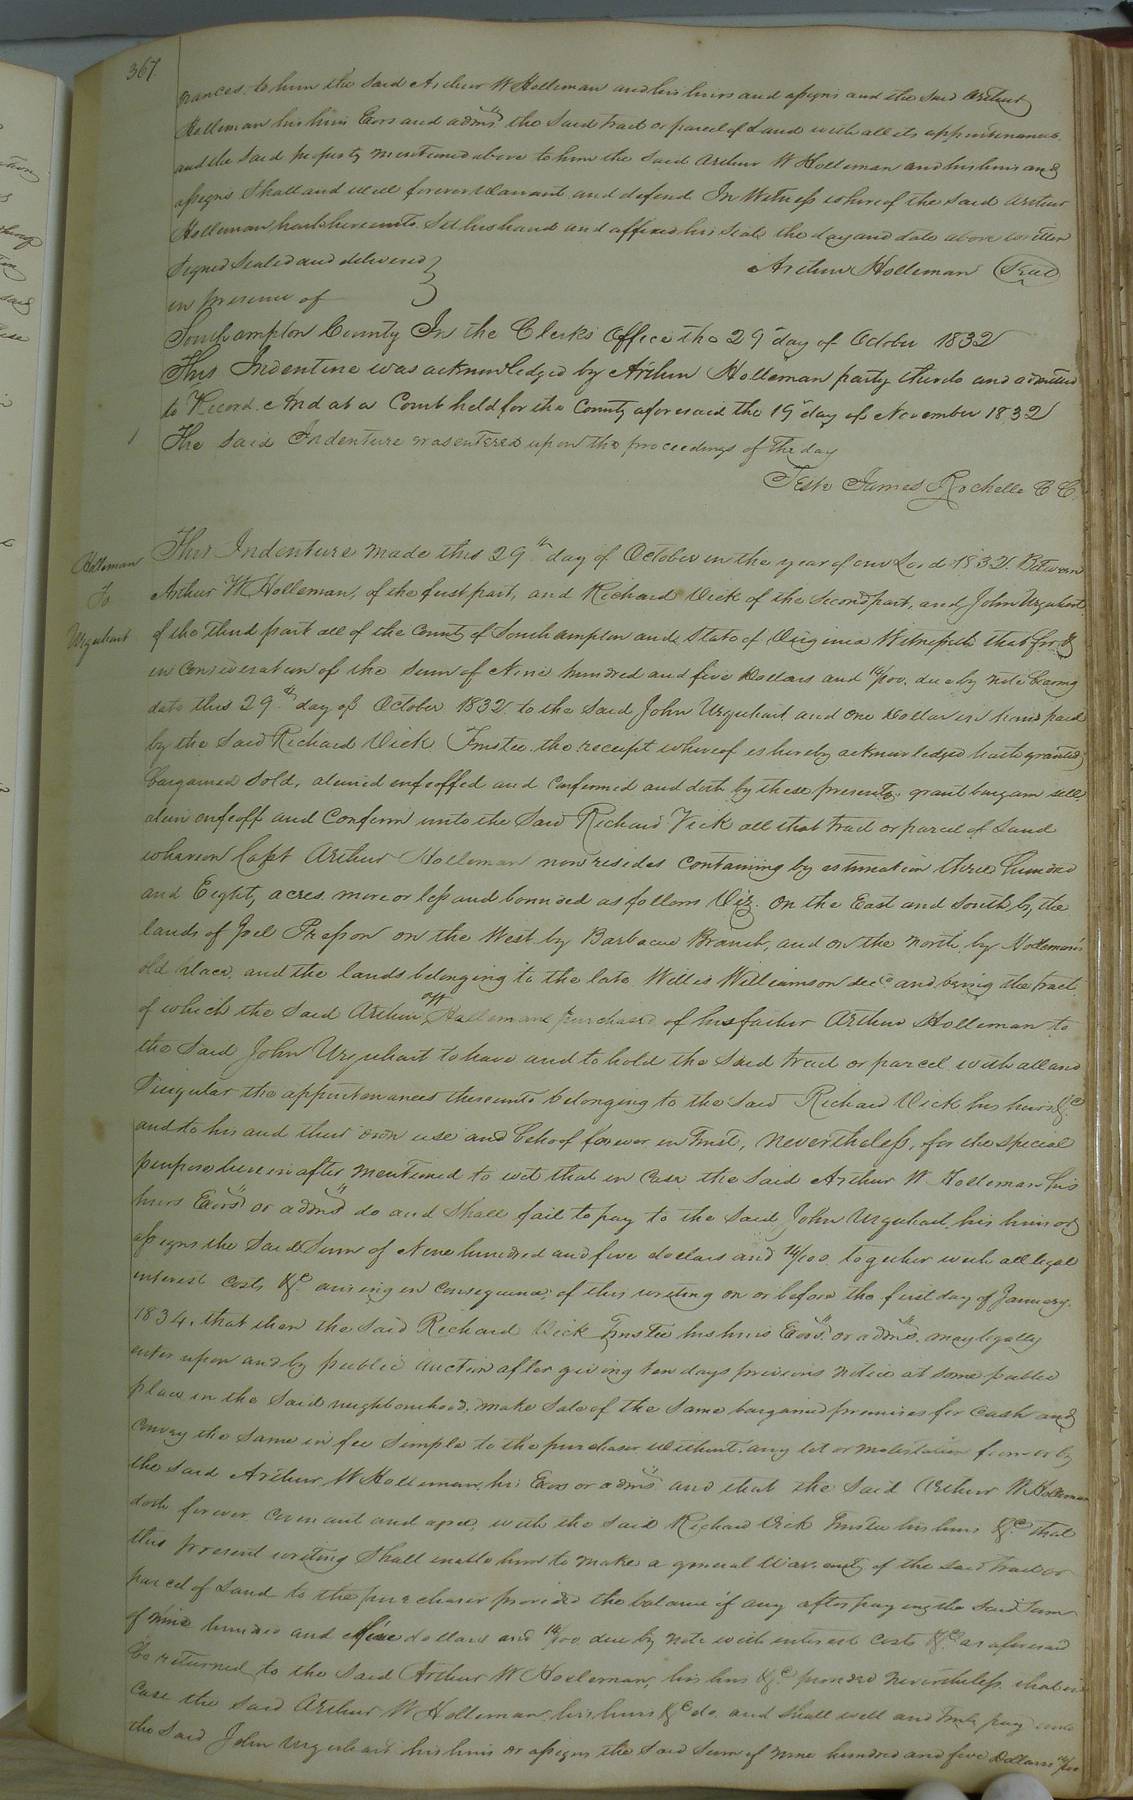 367
nances, to him the said Arthur W Holleman and his heirs and assigns and the said Arthur
Holleman his heirs Exors and adms. the said tract or parcel of Land with all its appurtenances
and the said property mentioned above to him the said Arthur W Holleman and his heirs and
assigns Shall and will forever Warrant and defend In Witness whereof the said Arthur
Holleman hath hereunto Set his hand and affixed his Seal the day and date above written
Signed Sealed and delivered
in presence of
Arthur Holleman (Seal)
Southampton County In the Clerks Office the 29th day of October 1832
This Indenture was acknowledged by Arthur Holleman party thereto and admitted
to Record. And at a Court held for the County aforesaid the 19th day of November 1832
The Said Indenture was entered upon the proceedings of the day
Teste James Rochelle C C
Holleman
To
Urquhart
This Indenture made this 29th day of October in the year of our Lord 1832. Between
Arthur W Holleman, of the first part, and Richard Vick of the Second part, and John Urquhart
of the Third part all of the County of Southampton and State of Virginia Witnesseth that for &
in Consideration of the Sum of Nine hundred and five Dollars and 14/100. due by note bearing
date this 29th day of October 1832 to the Said John Urquhart and one Dollar in hand paid
by the Said Richard Vick Trustee the receipt whereof is hereby acknowledged hath granted
bargained sold, aliened enfeoffed and Confirmed and doth by these presents, grant bargain sell,
alien enfeoff and Confirm unto the Said Richard Vick all that tract or parcel of Land
whereon Capt Arthur Holleman now resides Containing by estimation three hundred
and Eighty acres more or less and bounded as follows Viz. On the East and South by the
lands of Joel Presson on the West by Barbacue Branch, and on the North by Holleman's
old place, and the lands belonging to the late Willis Williamson decd and being the tract
of which the Said Arthur W Holleman purchased of his father Arthur Holleman to
the Said John Urquhart to have and to hold the Said tract or parcel with all and
Singular the appurtenances thereunto belonging to the Said Richard Vick his heirs &c
and to his and their own use and behoof forever in Trust, nevertheless, for the special
purpose herein after mentioned to wit that in Case the Said Arthur W Holleman his
heirs Exors or adms do and Shall fail to pay to the Said John Urquhart, his heirs or
assigns the Said Sum of Nine hundred and five dollars and 14/100 together with all legal
interest Costs &c arising in Consequence of this writing on or before the first day of January
1834, that then the Said Richard Vick Trustee his heirs Exors. or adms. may legally
enter upon and by public auction after giving ten days previous notice at some public
place in the Said neighbourhood, make Sale of the Same bargained premises for Cash and
Convey the Same in fee Simple to the purchaser without any let or molestation from or by
the Said Arthur W Holleman, his Exors or adms and that the Said Arthur W Holleman
doth forever Covenant and agree, with the Said Richard Vick Trustee his heirs &c that
this present writing Shall enable him to make a general Warranty of the Said Tract or
parcel of Land to the purchaser provided the balance if any after paying the Said Sum
of Nine hundred and five dollars and 14/100 due by note with interest Costs &c as aforesaid
be returned to the Said Arthur W Holleman, his heirs &c provided Nevertheless that in
Case the Said Arthur W Holleman his heirs &c do, and Shall well and truly pay unto
the Said John Urquhart his heirs or assigns the Said Sum of Nine hundred and five Dollars 14/100